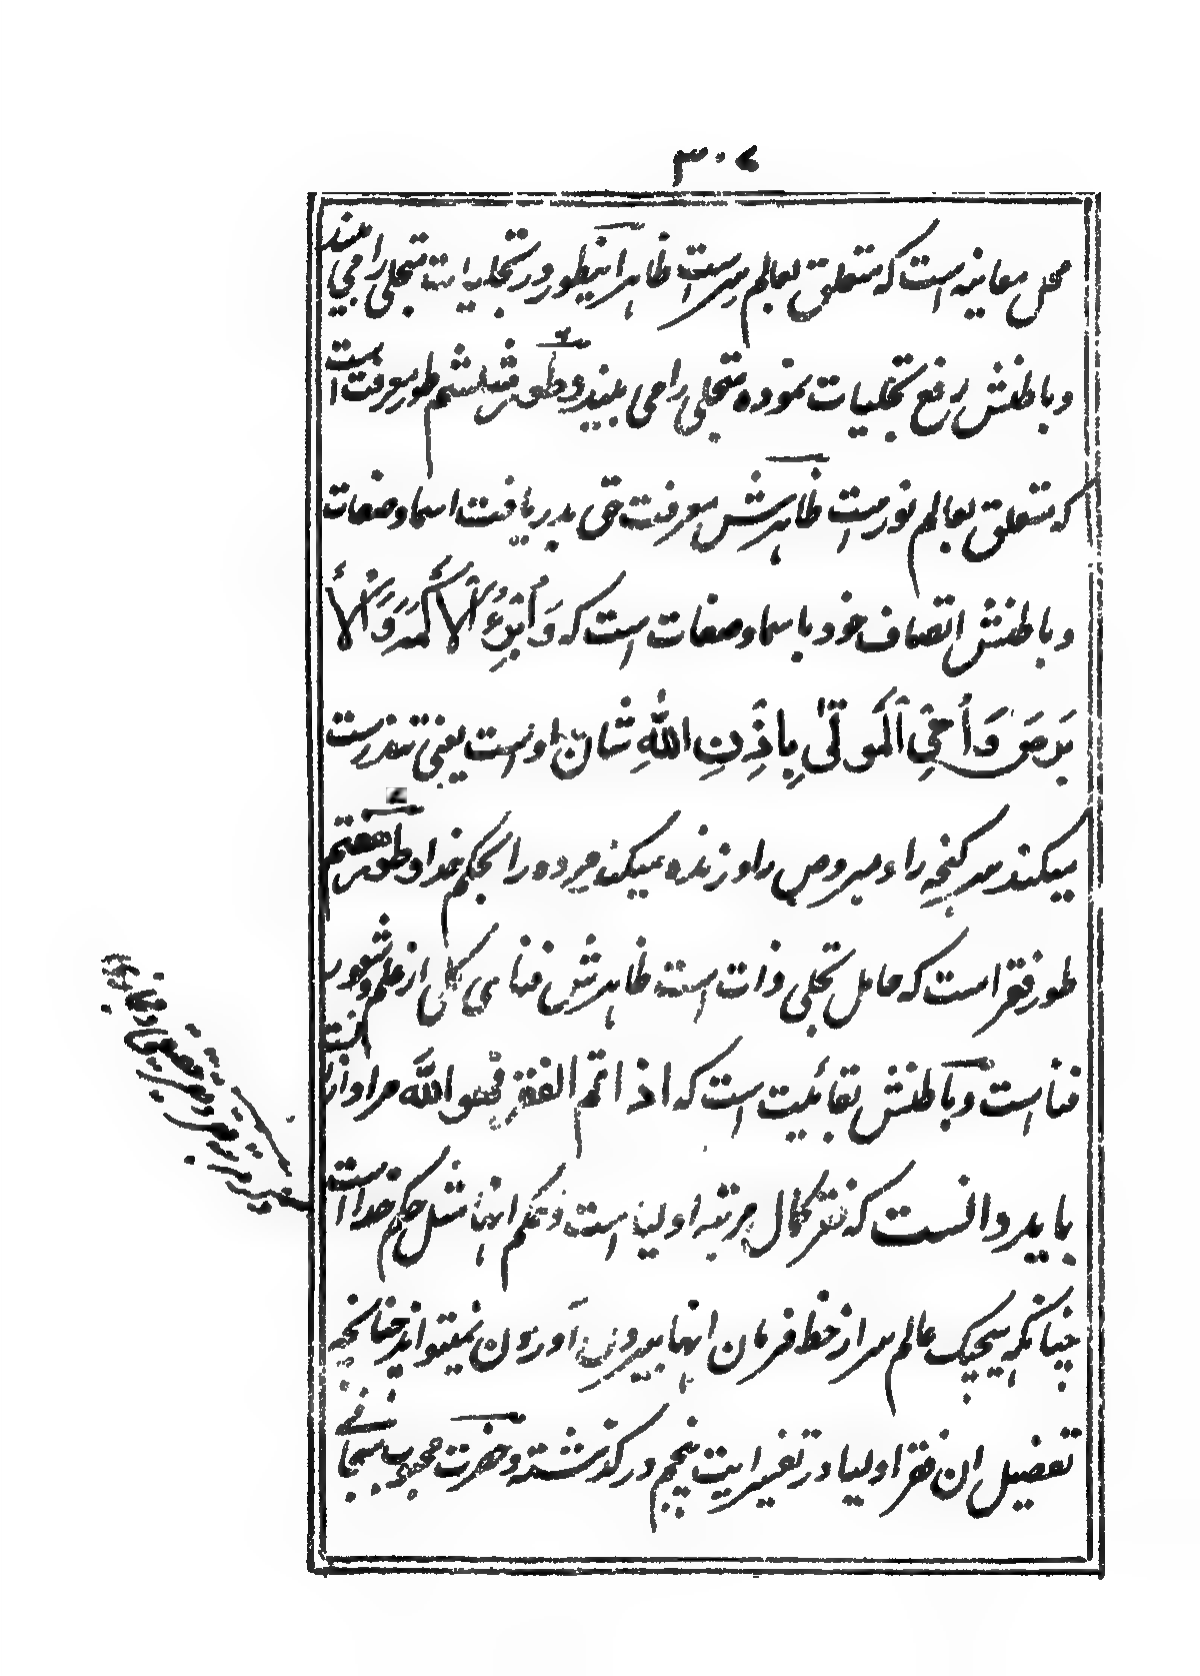 ۳۰۷
محل معاینه است که متعلق بعالم سر است ظاهر اینطور در تجلیات متجلی را می بیند
و باطنش رفع تجلیات نموده متجلی را می بیند و طور ششم طور معرفت است
که متعلق بعالم نور است ظاهرش معرفت حق بدریافت اسما و صفات
و باطنش اتصاف خود با سما و صفات است که وَأُبْرِئُ الْأَكْمَهَ وَالْأَ
بْرَصَ وَأُحْيِ الْمَوْتَىٰ بِإِذْنِ اللَّهِ شان اوست یعنی تندرست
میکند هر کنجه را و مبروص را و زنده میکند مرده را بحکم خدا و طور هفتم
طور فقر است که حامل تجلی ذات است ظاهرش فنای کلی از علم و شعور
فنا است و باطنش بقائیت است که اذا تم الفقر فهو الله مراد از
باید دانست که فقر کمال مرتبه اولیا است و حکم انها مثل حکم خدا است
چنانکه هیچیک عالم سر از خط فرمان انها بیرون آوردن نمیتواند چنانچه
تفصیل ان فقر اولیا در تفسیر ایت پنجم در گذشته و حضرت محبوب سبحانی